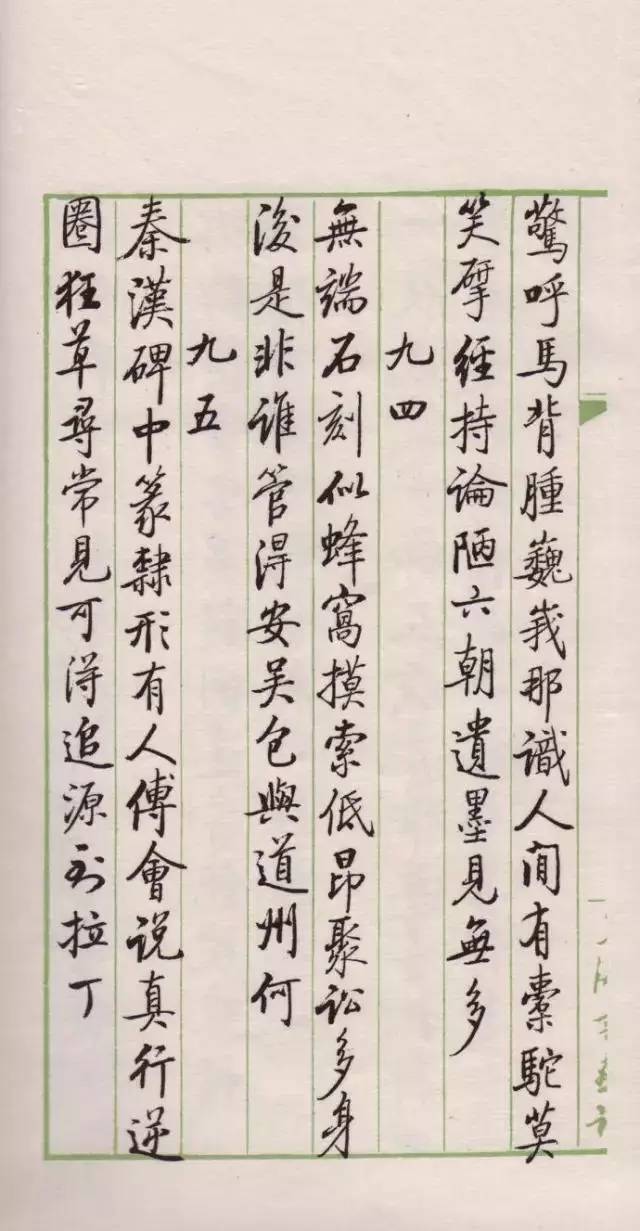 驚呼馬背腫巍峩那識人間有橐駝莫
笑揅經持論陋六朝遺墨見無多
九四
無端石刻似蜂窩摸索低昂聚訟多身
後是非誰管得安吳包與道州何
九五
秦漢碑中篆隸形有人傅會说真行逆
圈狂草尋常見可得追源到拉丁